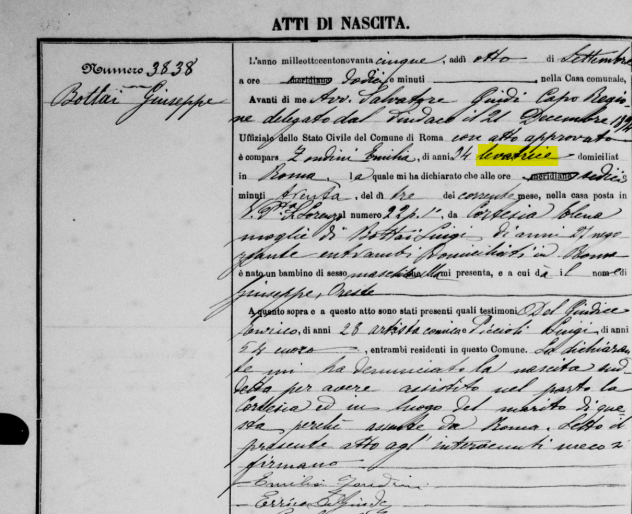 ATTI DI NASCITA.
Numero 3838
Bottai Giuseppe
L'anno milleottocentonovanta cinque, addì otto di Settembre
a ore meridiane dodici e minuti , nella Casa comunale,
Avanti di me Avv. Salvatore Guidi Capo Regio
ne delegato dal Sindaco il 21 Decembre 1894
Uffiziale dello Stato Civile del Comune di Roma con atto approvato
è compars Zondini Emilia, di anni 34 levatrice domiciliat
in Roma, la quale mi ha dichiarato che alle ore meridiane sedici
minuti trenta, del dì tre del corrente mese, nella casa posta in
al numero 22 p. 1°, da Cortesia Elena
moglie di Bottai Luigi di anni nego
ziante entrambi domiciliati in Roma
è nato un bambino di sesso maschile che mi presenta, e a cui dà il nome di
Giuseppe, Oreste
A quanto sopra e a questo atto sono stati presenti quali testimoni Del Giudice
Enrico, di anni 28 artista comico Luigi, di anni
54 , entrambi residenti in questo Comune. La dichiaran
te mi ha denunciato la nascita sud
detta per avere assistito nel parto la
Cortesia ed in luogo del marito di que
sta perchè assente da Roma. Letto il
presente atto agl' intervenuti meco si
firmano
Emilia Zondini